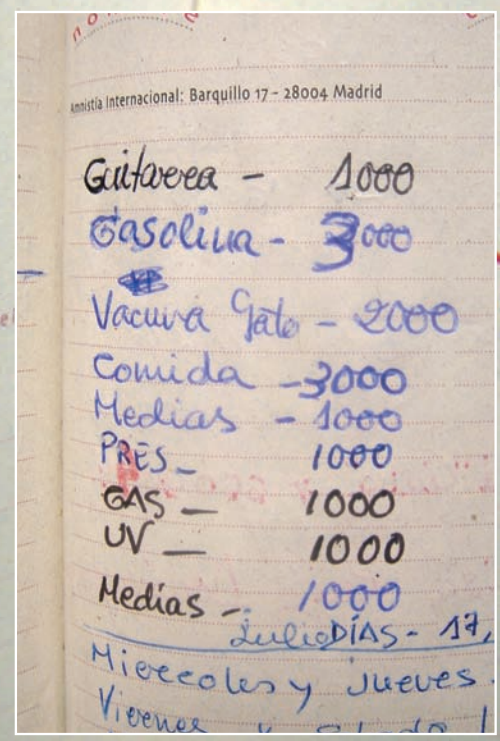 Amnistía Internacional: Barquillo 17 - 28004 Madrid
Guitarra - 1000
Gasolina - 3000
Vacuna Gato - 2000
Comida - 3000
Medias - 1000
PRES - 1000
GAS - 1000
UV - 1000
Medias - 1000
Julio DÍAS - 17,
Miercoles y Jueves
Viernes y